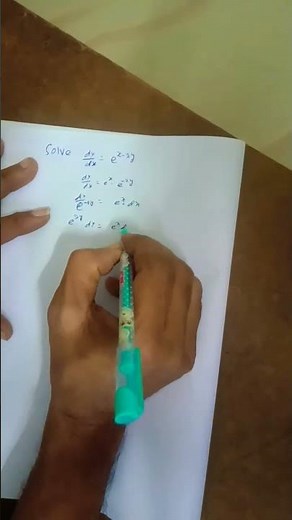 Solve dy/dx = e^x-2y
dy/dx = e^x · e^-2y
dy/e^-2y = e^x · dx
e^2y dy = e^x